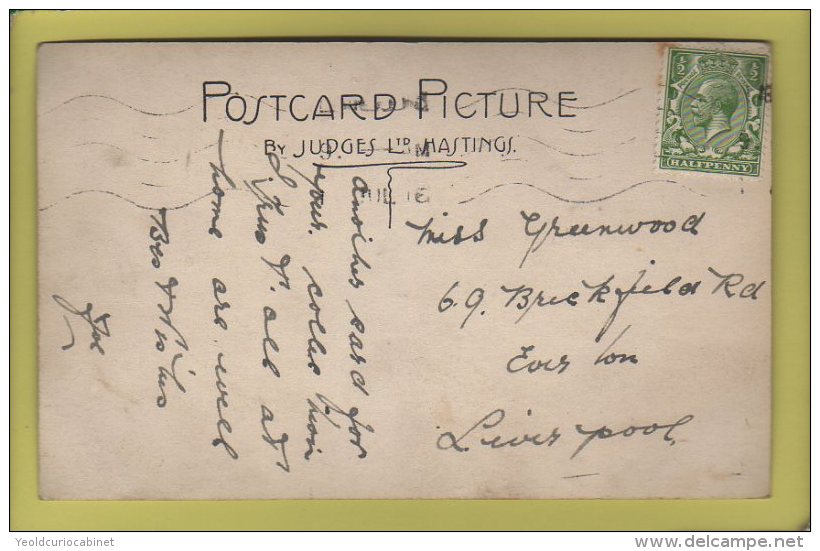 POSTCARD PICTURE
BY JUDGES LTD HASTINGS.
½ ½
HALFPENNY
another card for
your collection
I trust all at
home are well
Best Wishes
Joe
Miss Greenwood
69. Brickfield Rd
Everton
Liverpool
Yeoldcuriocabinet
delcampe.net